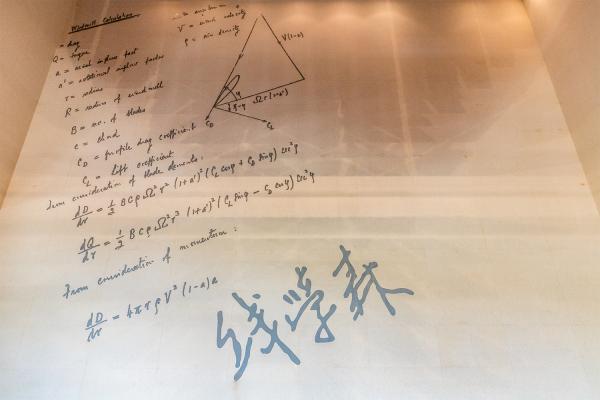 Windmill Calculation
= drag
Q = torque
a = axial inflow fact
a' = rotational inflow factor
r = radius
R = radius of windmill
B = no. of blades
c = chord
C_D = profile drag coefficient
C_L = lift coefficient
V = wind velocity
ρ = air density
V(1-a)
Ωr(1+a')
C_D
C_L
From consideration of blade elements:
dD/dr = 1/2 B c ρ Ω² r² (1+a')² (C_L cos φ + C_D sin φ) sec² φ
dQ/dr = 1/2 B c ρ Ω² r³ (1+a')² (C_L sin φ - C_D cos φ) sec² φ
From consideration of momentum:
dD/dr = 4π r ρ V² (1-a) a
钱学森